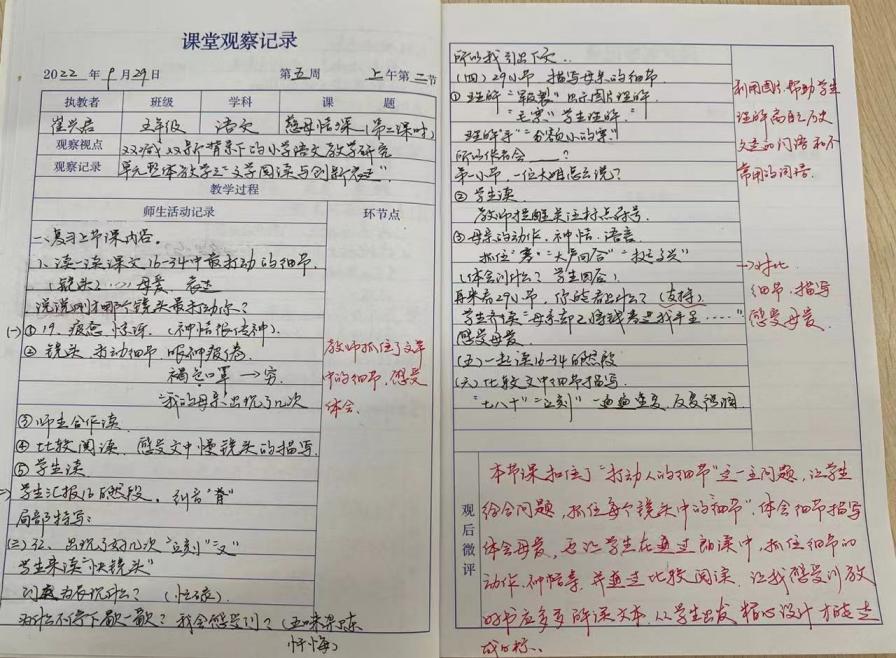 课堂观察记录
2022 年 9 月 29 日 第 五 周 上 午第 二 节
执教者 班级 学科 课 题
五年级 语文 慈母情深（第二课时）
观察视点 双减双新背景下的小学语文教学研究
观察记录 单元整体教学之“文学阅读与创新表达”
教学过程
师生活动记录 环节点
一、复习上节课内容。
1、读一读课文16-34中最打动的细节.
（镜头）母爱. 表达
说说刚才哪个镜头最打动你？
(一) ① 19. 疲惫 （神情很传神）.
② 镜头 打动细节 眼神疲倦.
褐色口罩 → 穷.
“我的母亲”出现了几次
③ 师生合作读.
④ 比较阅读. 感受文中慢镜头的描写.
⑤ 学生读
学生汇报 自然段. 纠音“脊”
局部特写:
(三) 出现了好几次“立刻”
学生来读“快镜头”
为什么不停下歇一歇？我会感受到？（五味杂陈
教师抓住了文章
中的细节, 感受
体会.
所以我引出下文..
(四) 29小节 描写母亲的细节.
① 理解“龟裂” 出示图片理解.
学生理解.
所以作者会____？
第一小节, 一位大姐怎么说？
② 学生读.
教师提醒关注标点符号.
③ 母亲的动作、神情、语言.
抓住 “大声回答”
（体会到什么？学生回答）
再来看29小节, 你能看出什么？（支持）.
学生齐读“母亲却已将钱塞在我手里……”
感受母爱.
(五) 一起读16-34自然段
(六) 比较文中细节描写.
“七八十”“立刻” 一遍遍重复, 反复强调.
利用图片, 帮助学生
理解离自己历史
久远的词语和不
常用的词语.
→对比
细节, 描写
感受母爱.
观后微评
本节课扣住了“打动人的细节”这一主问题, 让学生
结合问题, 抓住每个镜头中的“细节”, 体会细节描写
体会母爱, 更让学生在通过朗读中, 抓住细节的
动作、神情等, 并通过比较阅读. 让我感受到教
好书应多多解读文本, 从学生出发, 精心设计, 才能达
成目标.